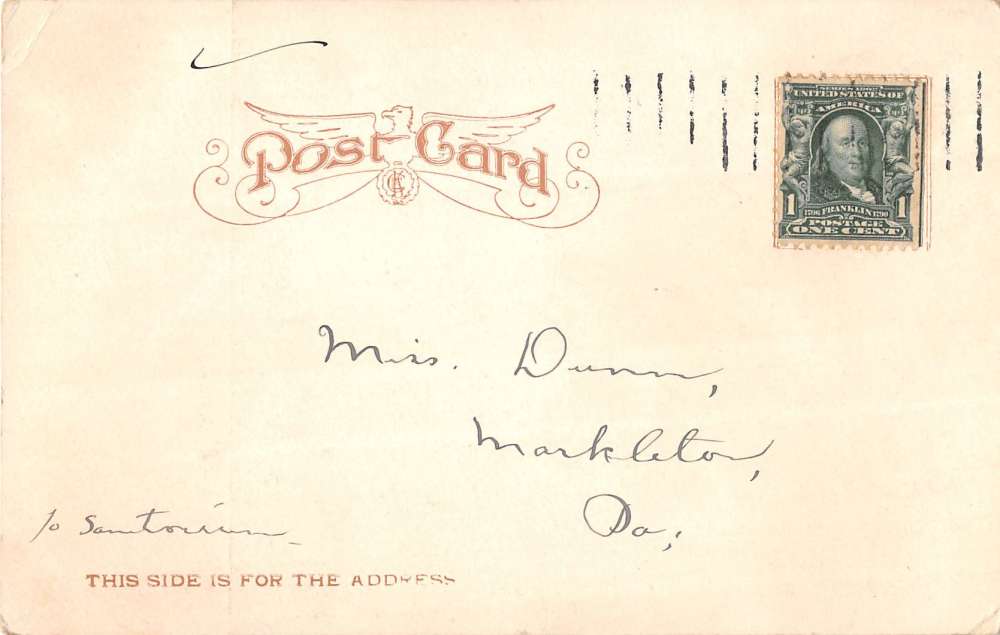 Post Card
SERIES 1902
UNITED STATES OF
AMERICA
1 1
1706 FRANKLIN 1790
POSTAGE
ONE CENT
Miss. Dunn,
Markleton,
Pa,
To Sanitorium
THIS SIDE IS FOR THE ADDRESS